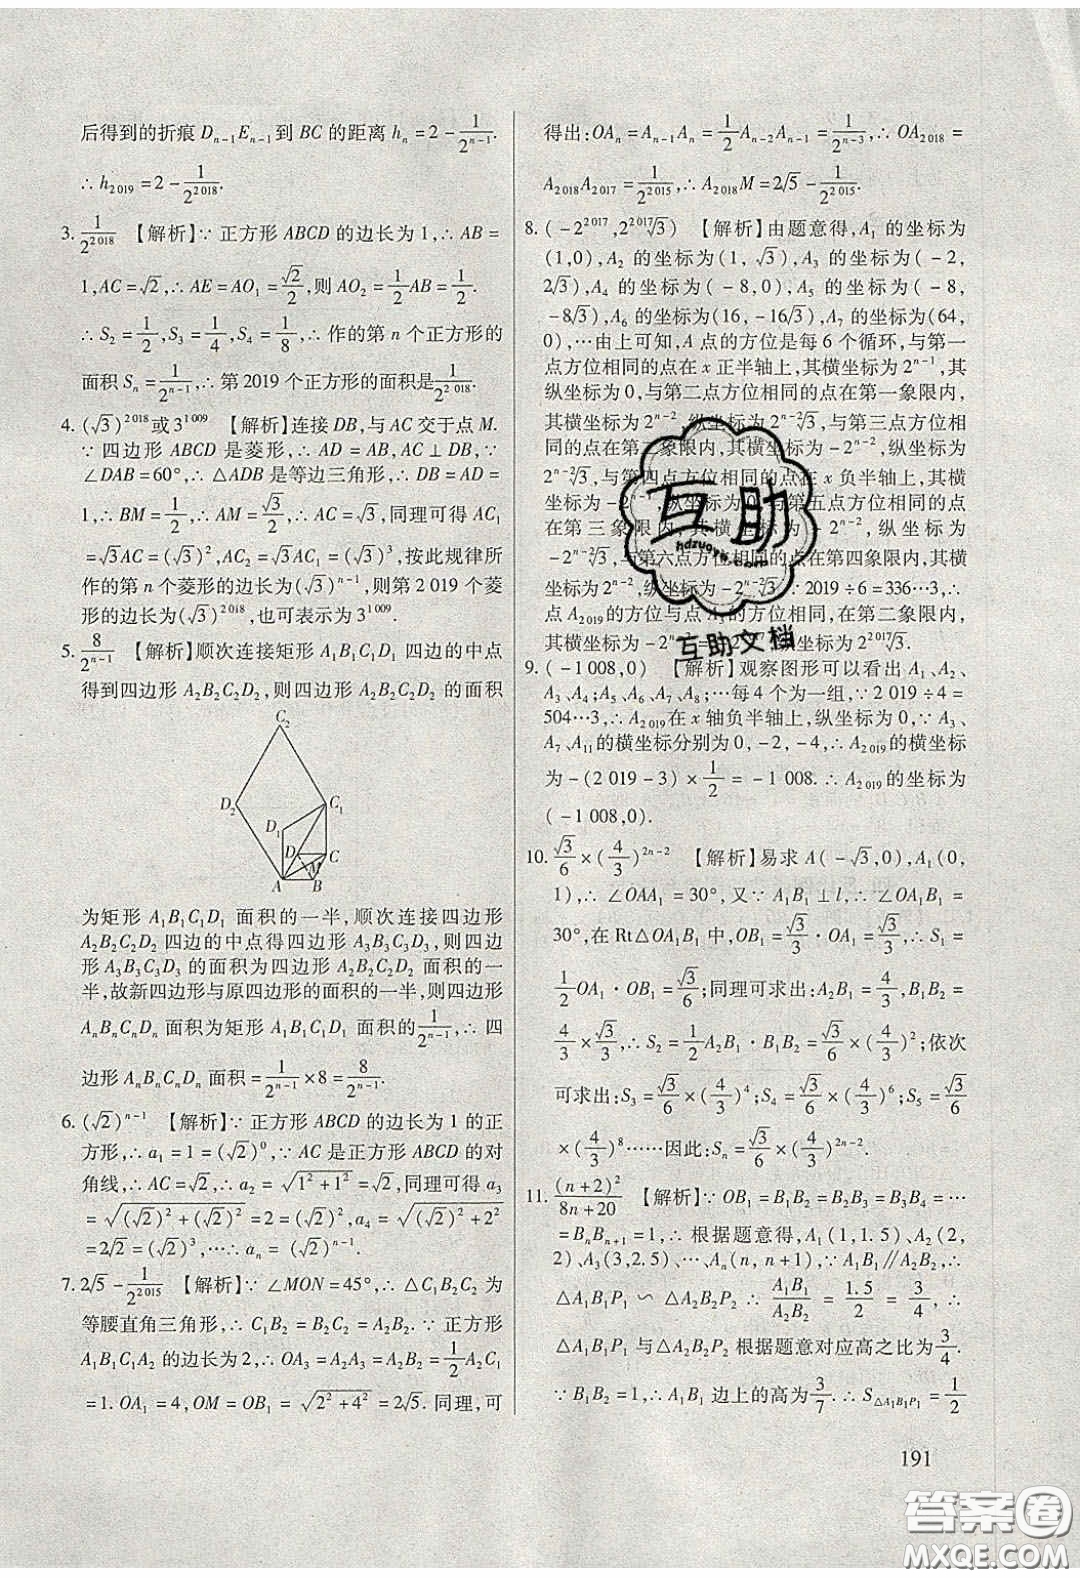 后得到的折痕 Dₙ₋₁Eₙ₋₁ 到 BC 的距离 hₙ = 2 - 1/2ⁿ⁻¹.
∴ h₂₀₁₉ = 2 - 1/2^2018.
3. 1/2^2018 【解析】∵ 正方形 ABCD 的边长为 1,∴ AB =
1,AC = √2,∴ AE = AO₁ = √2/2,则 AO₂ = 1/2 AB = 1/2.
∴ S₂ = 1/2,S₃ = 1/4,S₄ = 1/8,∴ 作的第 n 个正方形的
面积 Sₙ = 1/2ⁿ⁻¹,∴ 第 2019 个正方形的面积是 1/2^2018.
4. (√3)^2018 或 3^1009 【解析】连接 DB,与 AC 交于点 M.
∵ 四边形 ABCD 是菱形,∴ AD = AB,AC⊥DB,∵
∠DAB = 60°,∴ △ADB 是等边三角形,∴ DB = AD =
1,∴ BM = 1/2,∴ AM = √3/2,∴ AC = √3,同理可得 AC₁
= √3AC = (√3)²,AC₂ = √3AC₁ = (√3)³,按此规律所
作的第 n 个菱形的边长为 (√3)ⁿ⁻¹,则第 2 019 个菱
形的边长为 (√3)^2018,也可表示为 3^1009.
5. 8/2ⁿ⁻¹ 【解析】顺次连接矩形 A₁B₁C₁D₁ 四边的中点
得到四边形 A₂B₂C₂D₂,则四边形 A₂B₂C₂D₂ 的面积
C₂
D₂
C₁
D₁
D
C
M
A
B
为矩形 A₁B₁C₁D₁ 面积的一半,顺次连接四边形
A₂B₂C₂D₂ 四边的中点得四边形 A₃B₃C₃D₃,则四边
形 A₃B₃C₃D₃ 的面积为四边形 A₂B₂C₂D₂ 面积的一
半,故新四边形与原四边形的面积的一半,则四边形
AₙBₙCₙDₙ 面积为矩形 A₁B₁C₁D₁ 面积的 1/2ⁿ⁻¹,∴ 四
边形 AₙBₙCₙDₙ 面积 = 1/2ⁿ⁻¹ × 8 = 8/2ⁿ⁻¹.
6. (√2)ⁿ⁻¹ 【解析】∵ 正方形 ABCD 的边长为 1 的正
方形,∴ a₁ = 1 = (√2)⁰,∵ AC 是正方形 ABCD 的对
角线,∴ AC = √2,∴ a₂ = √(1² + 1²) = √2,同理可得 a₃
= √((√2)² + (√2)²) = 2 = (√2)²,a₄ = √((√2)² + 2²)
= 2√2 = (√2)³,⋯∴ aₙ = (√2)ⁿ⁻¹.
7. 2√5 - 1/2^2015 【解析】∵ ∠MON = 45°,∴ △C₁B₂C₂ 为
等腰直角三角形,∴ C₁B₂ = B₂C₂ = A₂B₂. ∵ 正方形
A₁B₁C₁A₂ 的边长为 2,∴ OA₃ = A₂A₃ = A₂B₂ = 1/2 A₂C₁
= 1. OA₁ = 4,OM = OB₁ = √(2² + 4²) = 2√5. 同理,可
得出:OAₙ = Aₙ₋₁Aₙ = 1/2 Aₙ₋₂Aₙ₋₁ = 1/2ⁿ⁻³,∴ OA₂₀₁₈ =
A₂₀₁₈A₂₀₁₇ = 1/2^2015,∴ A₂₀₁₈M = 2√5 - 1/2^2015.
8. (-2^2017,2^2017√3) 【解析】由题意得,A₁ 的坐标为
(1,0),A₂ 的坐标为 (1,√3),A₃ 的坐标为 (-2,
2√3),A₄ 的坐标为 (-8,0),A₅ 的坐标为 (-8,
-8√3),A₆ 的坐标为 (16,-16√3),A₇ 的坐标为 (64,
0),⋯由上可知,A 点的方位是每 6 个循环,与第一
点方位相同的点在 x 正半轴上,其横坐标为 2ⁿ⁻¹,其
纵坐标为 0,与第二点方位相同的点在第一象限内,
其横坐标为 2ⁿ⁻²,纵坐标为 2ⁿ⁻²√3,与第三点方位相
同的点在第二象限内,其横坐标为 -2ⁿ⁻²,纵坐标为
2ⁿ⁻²√3,与第四点方位相同的点在 x 负半轴上,其横
坐标为 -2ⁿ⁻¹,纵坐标为 0,与第五点方位相同的点
在第三象限内,其横坐标为 -2ⁿ⁻²,纵坐标为
-2ⁿ⁻²√3,与第六点方位相同的点在第四象限内,其
横坐标为 2ⁿ⁻²,纵坐标为 -2ⁿ⁻²√3∵ 2019÷6 = 336⋯3,∴
点 A₂₀₁₉ 的方位与点 A₃ 的方位相同,在第二象限内,
其横坐标为 -2ⁿ⁻² = -2^2017,纵坐标为 2^2017√3.
9. (-1 008,0) 【解析】观察图形可以看出 A₁、A₂、
A₃、A₄;A₅、A₆、A₇、A₈;⋯每 4 个为一组,∵ 2 019÷4 =
504⋯3,∴ A₂₀₁₉ 在 x 轴负半轴上,纵坐标为 0,∵ A₃、
A₇、A₁₁ 的横坐标分别为 0,-2,-4,∴ A₂₀₁₉ 的横坐标
为 -(2 019-3) × 1/2 = -1 008. ∴ A₂₀₁₉ 的坐标为
(-1 008,0).
10. √3/6 × (4/3)²ⁿ⁻² 【解析】易求 A(-√3,0),A₁(0,
1),∴ ∠OAA₁ = 30°,又∵ A₁B₁⊥l,∴ ∠OA₁B₁ =
30°,在 Rt△OA₁B₁ 中,OB₁ = √3/3 · OA₁ = √3/3,∴ S₁ =
1/2 OA₁ · OB₁ = √3/6;同理可求出:A₂B₁ = 4/3,B₁B₂ =
4/3 × √3/3,∴ S₂ = 1/2 A₂B₁ · B₁B₂ = √3/6 × (4/3)²;依次
可求出:S₃ = √3/6 × (4/3)⁴;S₄ = √3/6 × (4/3)⁶;S₅ = √3/6
× (4/3)⁸⋯⋯因此:Sₙ = √3/6 × (4/3)²ⁿ⁻².
11. (n+2)²/(8n+20) 【解析】∵ OB₁ = B₁B₂ = B₂B₃ = B₃B₄ = ⋯
= BₙBₙ₊₁ = 1,∴ 根据题意得,A₁(1,1.5)、A₂(2,
2)、A₃(3,2.5)、⋯、Aₙ(n,n+1),∵ A₁B₁∥A₂B₂,∴
△A₁B₁P₁ ∽ △A₂B₂P₂ ∴ A₁B₁/A₂B₂ = 1.5/2 = 3/4,∴
△A₁B₁P₁ 与△A₂B₂P₂ 根据题意对应高之比为 3/4.
∵ B₁B₂ = 1,∴ A₁B₁ 边上的高为 3/7. ∴ S△A₁B₁P₁ = 1/2
191
互助
hdzuoye.com
互助文档
答案圈
MXQE.COM